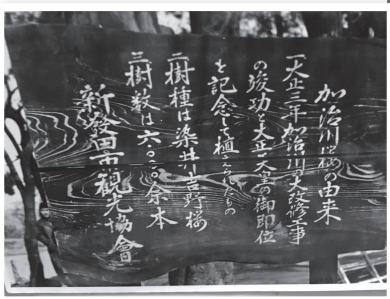 加治川堤桜の由来
一、大正三年加治川の大改修工事
の竣功と大正天皇の御即位
を記念して植ゑられたもの
二、樹種は染井吉野桜
三、樹数は六〇〇〇余本
新發田市観光協會